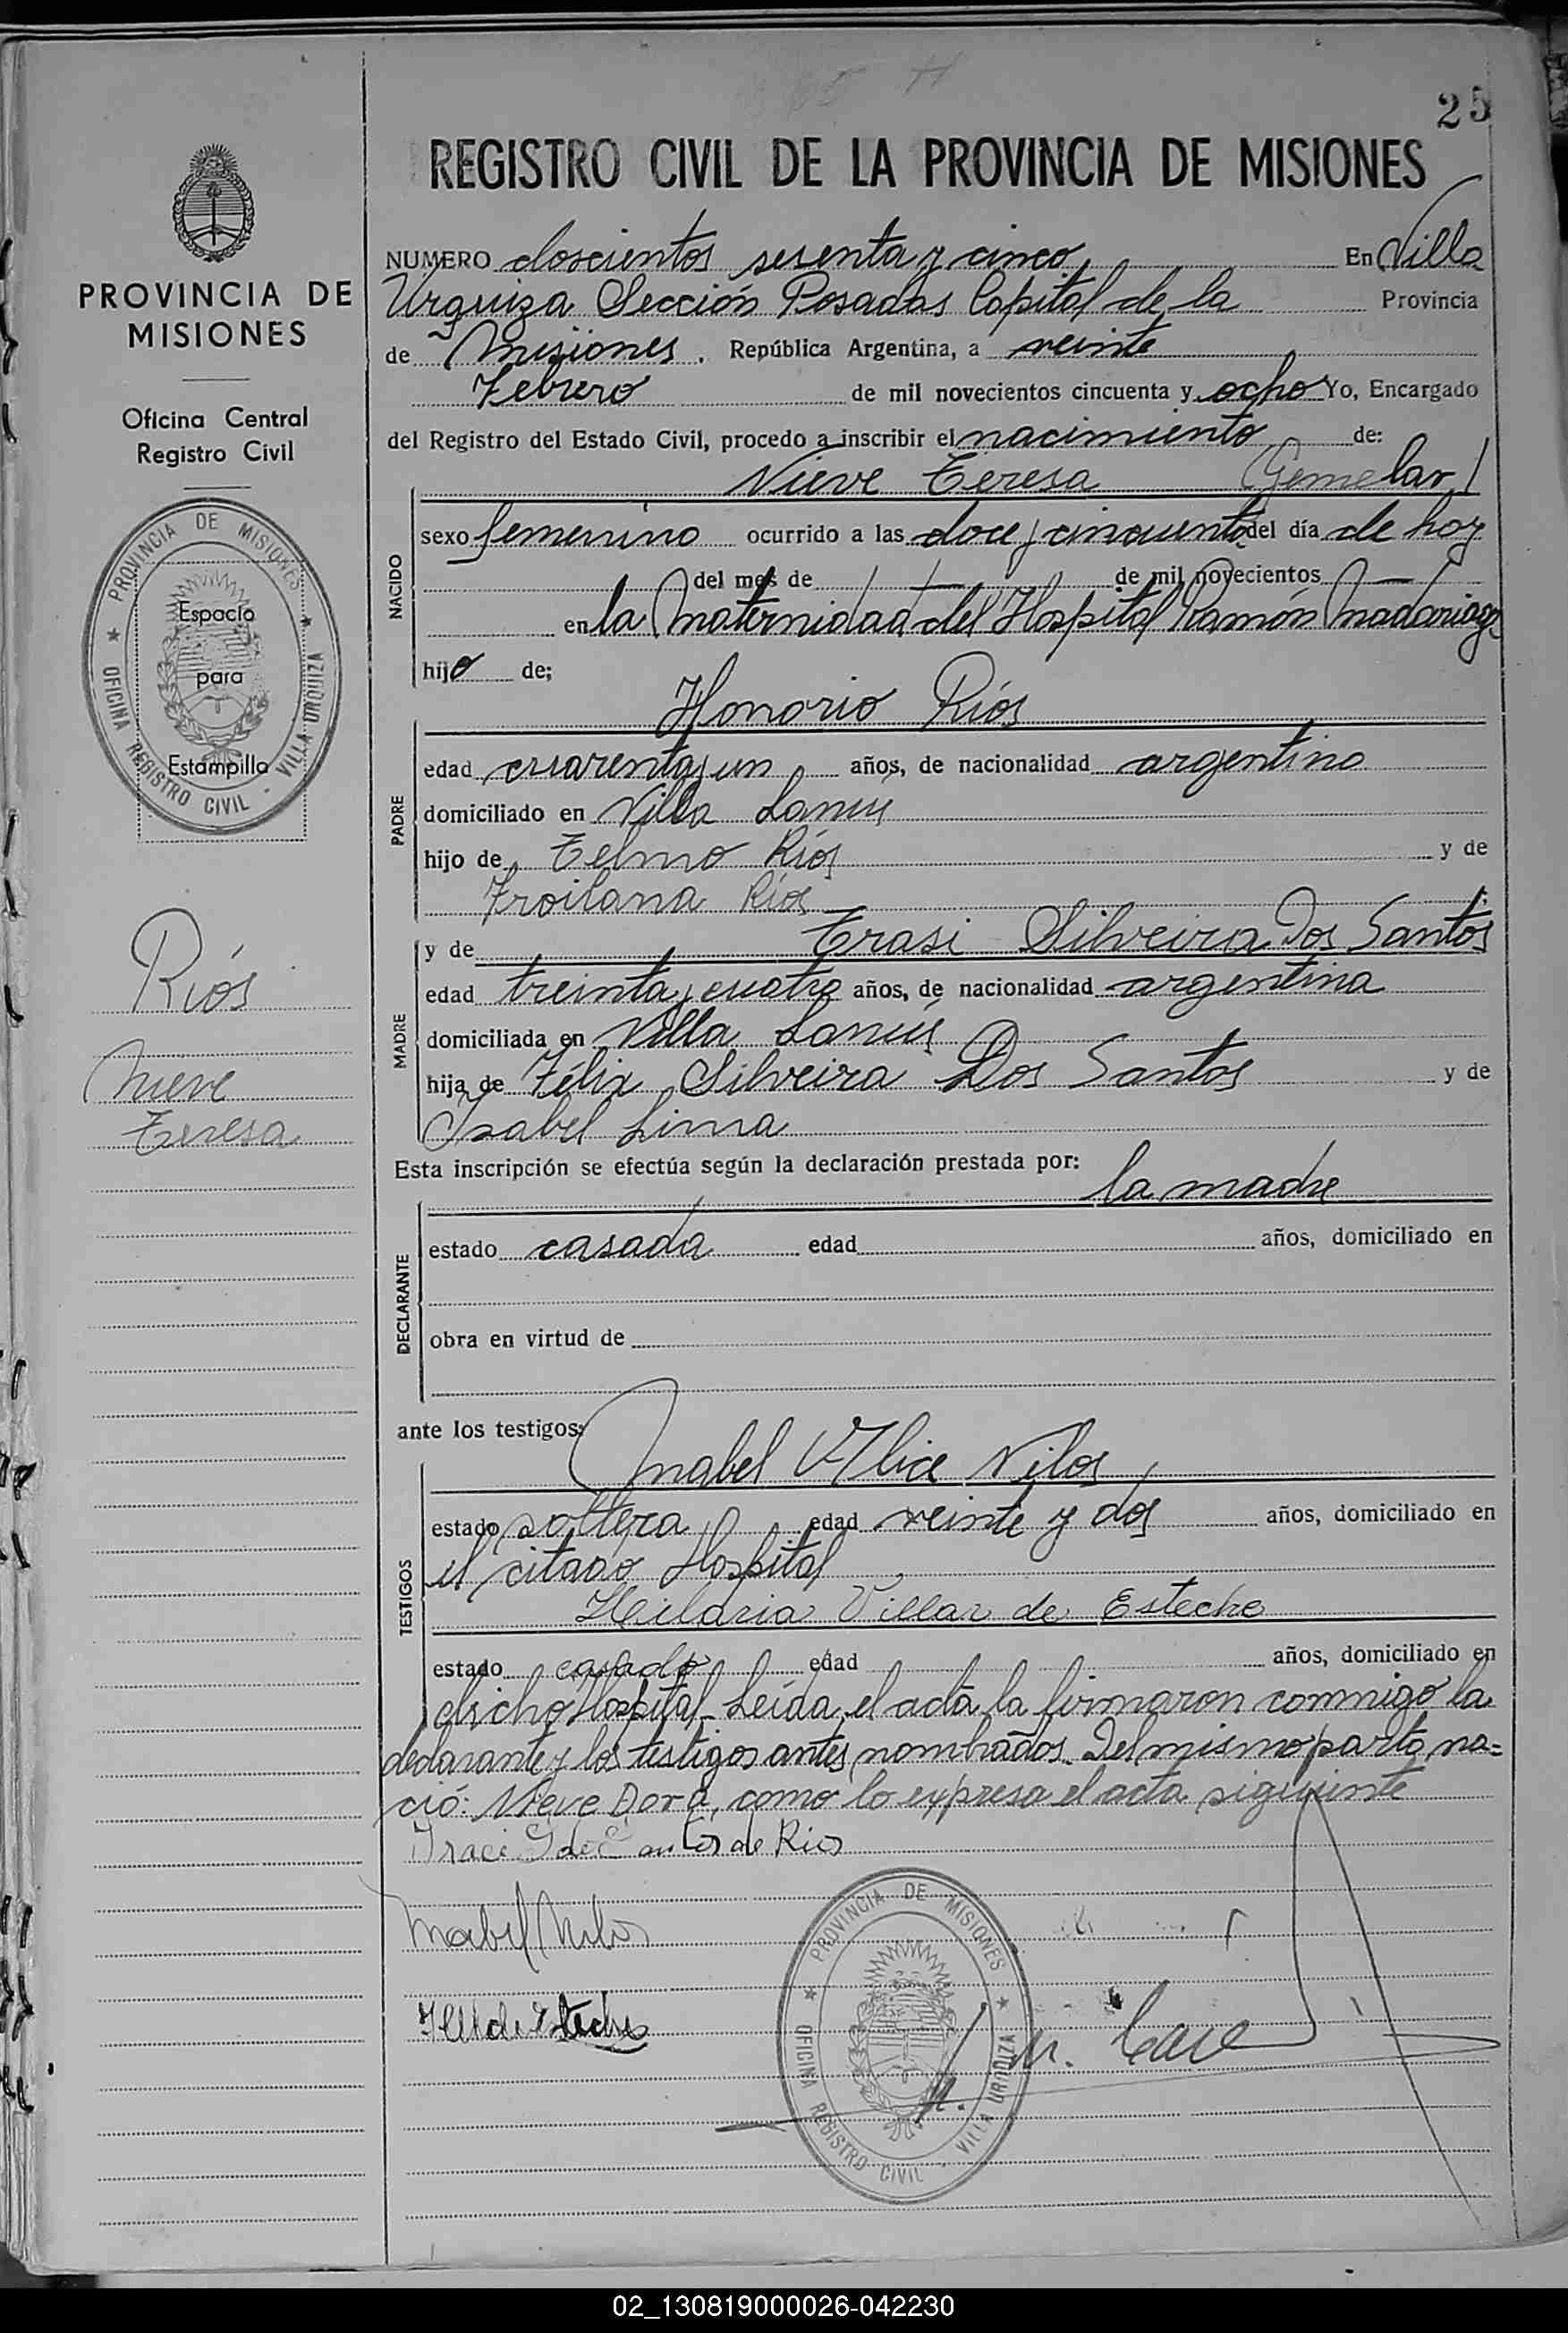 25
REGISTRO CIVIL DE LA PROVINCIA DE MISIONES
PROVINCIA DE
MISIONES
Oficina Central
Registro Civil
PROVINCIA DE MISIONES
OFICINA REGISTRO CIVIL - VILLA URQUIZA
Espacio
para
Estampilla
Ríos
Nieve
Teresa
NUMERO doscientos sesenta y cinco En Villa
Urquiza Sección Posadas Capital de la Provincia
de Misiones. República Argentina, a veinte
Febrero de mil novecientos cincuenta y ocho Yo, Encargado
del Registro del Estado Civil, procedo a inscribir el nacimiento de:
Nieve Teresa (Gemelar)
NACIDO
sexo femenino ocurrido a las doce y cincuenta del día de hoy
del mes de de mil novecientos
en la Maternidad del Hospital Ramón Madariaga
hijo de;
Honorio Ríos
PADRE
edad cuarenta y un años, de nacionalidad argentino
domiciliado en Villa Lanús
hijo de Telmo Ríos y de
Froilana Ríos
MADRE
y de Erasi Silveira Dos Santos
edad treinta y cuatro años, de nacionalidad argentina
domiciliada en Villa Lanús
hija de Félix Silveira Dos Santos y de
Isabel Lima
Esta inscripción se efectúa según la declaración prestada por:
la madre
DECLARANTE
estado casada edad años, domiciliado en
obra en virtud de
ante los testigos:
Mabel Alice Nilos
TESTIGOS
estado soltera edad veinte y dos años, domiciliado en
el citado Hospital
Hilaria Villar de Esteche
estado casada edad años, domiciliado en
dicho Hospital. Leída el acta la firmaron conmigo la
declarante y los testigos antes nombrados. Del mismo parto na=
ció: Nieve Dora, como lo expresa el acta siguiente
de Rios
Mabel Nilos
PROVINCIA DE MISIONES
OFICINA REGISTRO CIVIL - VILLA URQUIZA
02_130819000026-042230